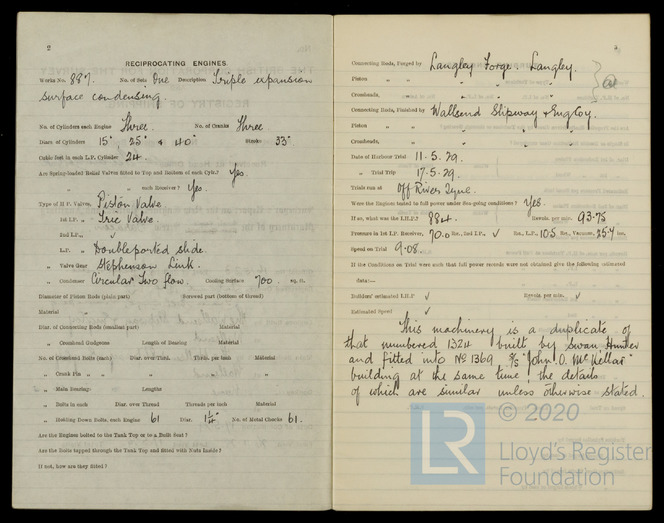 2
RECIPROCATING ENGINES.
Works No. 887. No. of Sets One Description Triple expansion
surface condensing
No. of Cylinders each Engine Three. No. of Cranks Three
Diars. of Cylinders 15" , 25" & 40" Stroke 33"
Cubic feet in each L.P. Cylinder 24.
Are Spring-loaded Relief Valves fitted to Top and Bottom of each Cylr.? Yes.
„ „ each Receiver? Yes.
Type of H.P. Valves, Piston Valve
„ 1st I.P. „ Tric Valve.
„ 2nd I.P. „ ✓
„ L.P. „ Double ported slide.
„ Valve Gear Stephenson Link.
„ Condenser Circular Two flow. Cooling Surface 700 sq. ft.
Diameter of Piston Rods (plain part) Screwed part (bottom of thread)
Material „
Diar. of Connecting Rods (smallest part) Material
„ Crosshead Gudgeons Length of Bearing Material
No. of Crosshead Bolts (each) Diar. over Thrd. Thrds. per inch Material
„ Crank Pin „ „ „ „ „
„ Main Bearing Lengths
„ Bolts in each Diar. over Thread Threads per inch Material
„ Holding Down Bolts, each Engine 61 Diar. 1¼" No. of Metal Chocks 61.
Are the Engines bolted to the Tank Top or to a Built Seat?
Are the Bolts tapped through the Tank Top and fitted with Nuts Inside?
If not, how are they fitted?
Connecting Rods, Forged by Langley Forge. Langley.
Piston „ „
Crossheads, „
Connecting Rods, Finished by Wallsend Slipway & Eng Coy.
Piston „ „
Crossheads, „
Date of Harbour Trial 11.5.29.
„ Trial Trip 17.5.29.
Trials run at Off River Tyne.
Were the Engines tested to full power under Sea-going conditions? Yes.
If so, what was the I.H.P.? 884. Revols. per min. 93.75
Pressure in 1st I.P. Receiver, 70.0 lbs., 2nd I.P., ✓ lbs., L.P. 10.5 lbs., Vacuum, 25.4 ins.
Speed on Trial 9.08.
If the Conditions on Trial were such that full power records were not obtained give the following estimated
data:—
Builders' estimated I.H.P. ✓ Revols. per min. ✓
Estimated Speed ✓
This machinery is a duplicate of
that numbered 1324 built by Swan Hunter
and fitted into No 1369 S/S "John O. McKellar"
building at the same time the details
of which are similar unless otherwise stated.
© 2020
LR
Lloyd's Register
Foundation